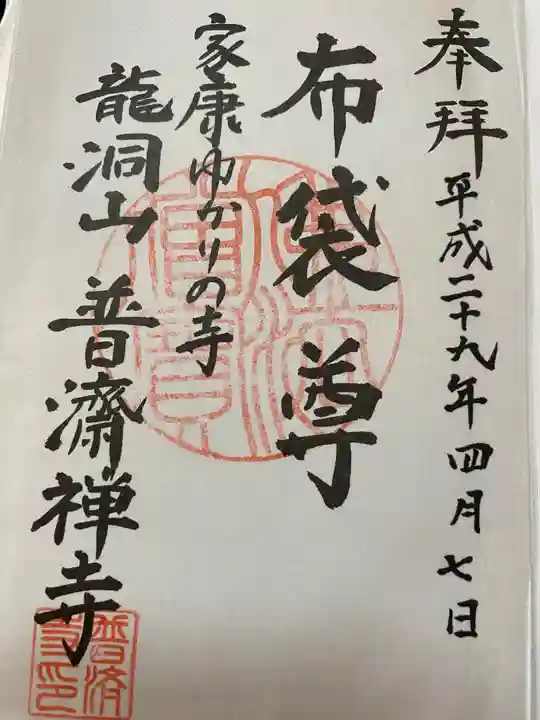 奉拝 平成二十九年四月七日
布袋尊
家康ゆかりの寺
龍洞山 普濟禅寺
普済寺印